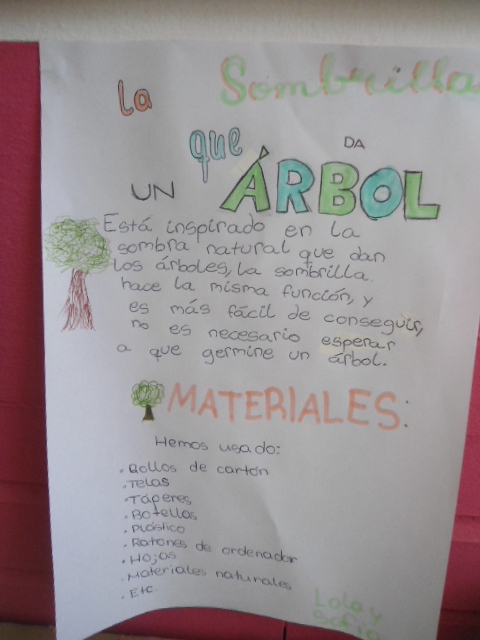 La Sombrilla
que DA
UN ÁRBOL
Está inspirado en la
sombra natural que dan
los árboles, la sombrilla.
hace la misma función, y
es más fácil de conseguir,
no es necesario esperar
a que germine un árbol.
MATERIALES:
Hemos usado:
. Rollos de cartón
. Telas
. Táperes
. Botellas
. Plástico
. Ratones de ordenador
. Hojas
. Materiales naturales
. Etc.
Lola y